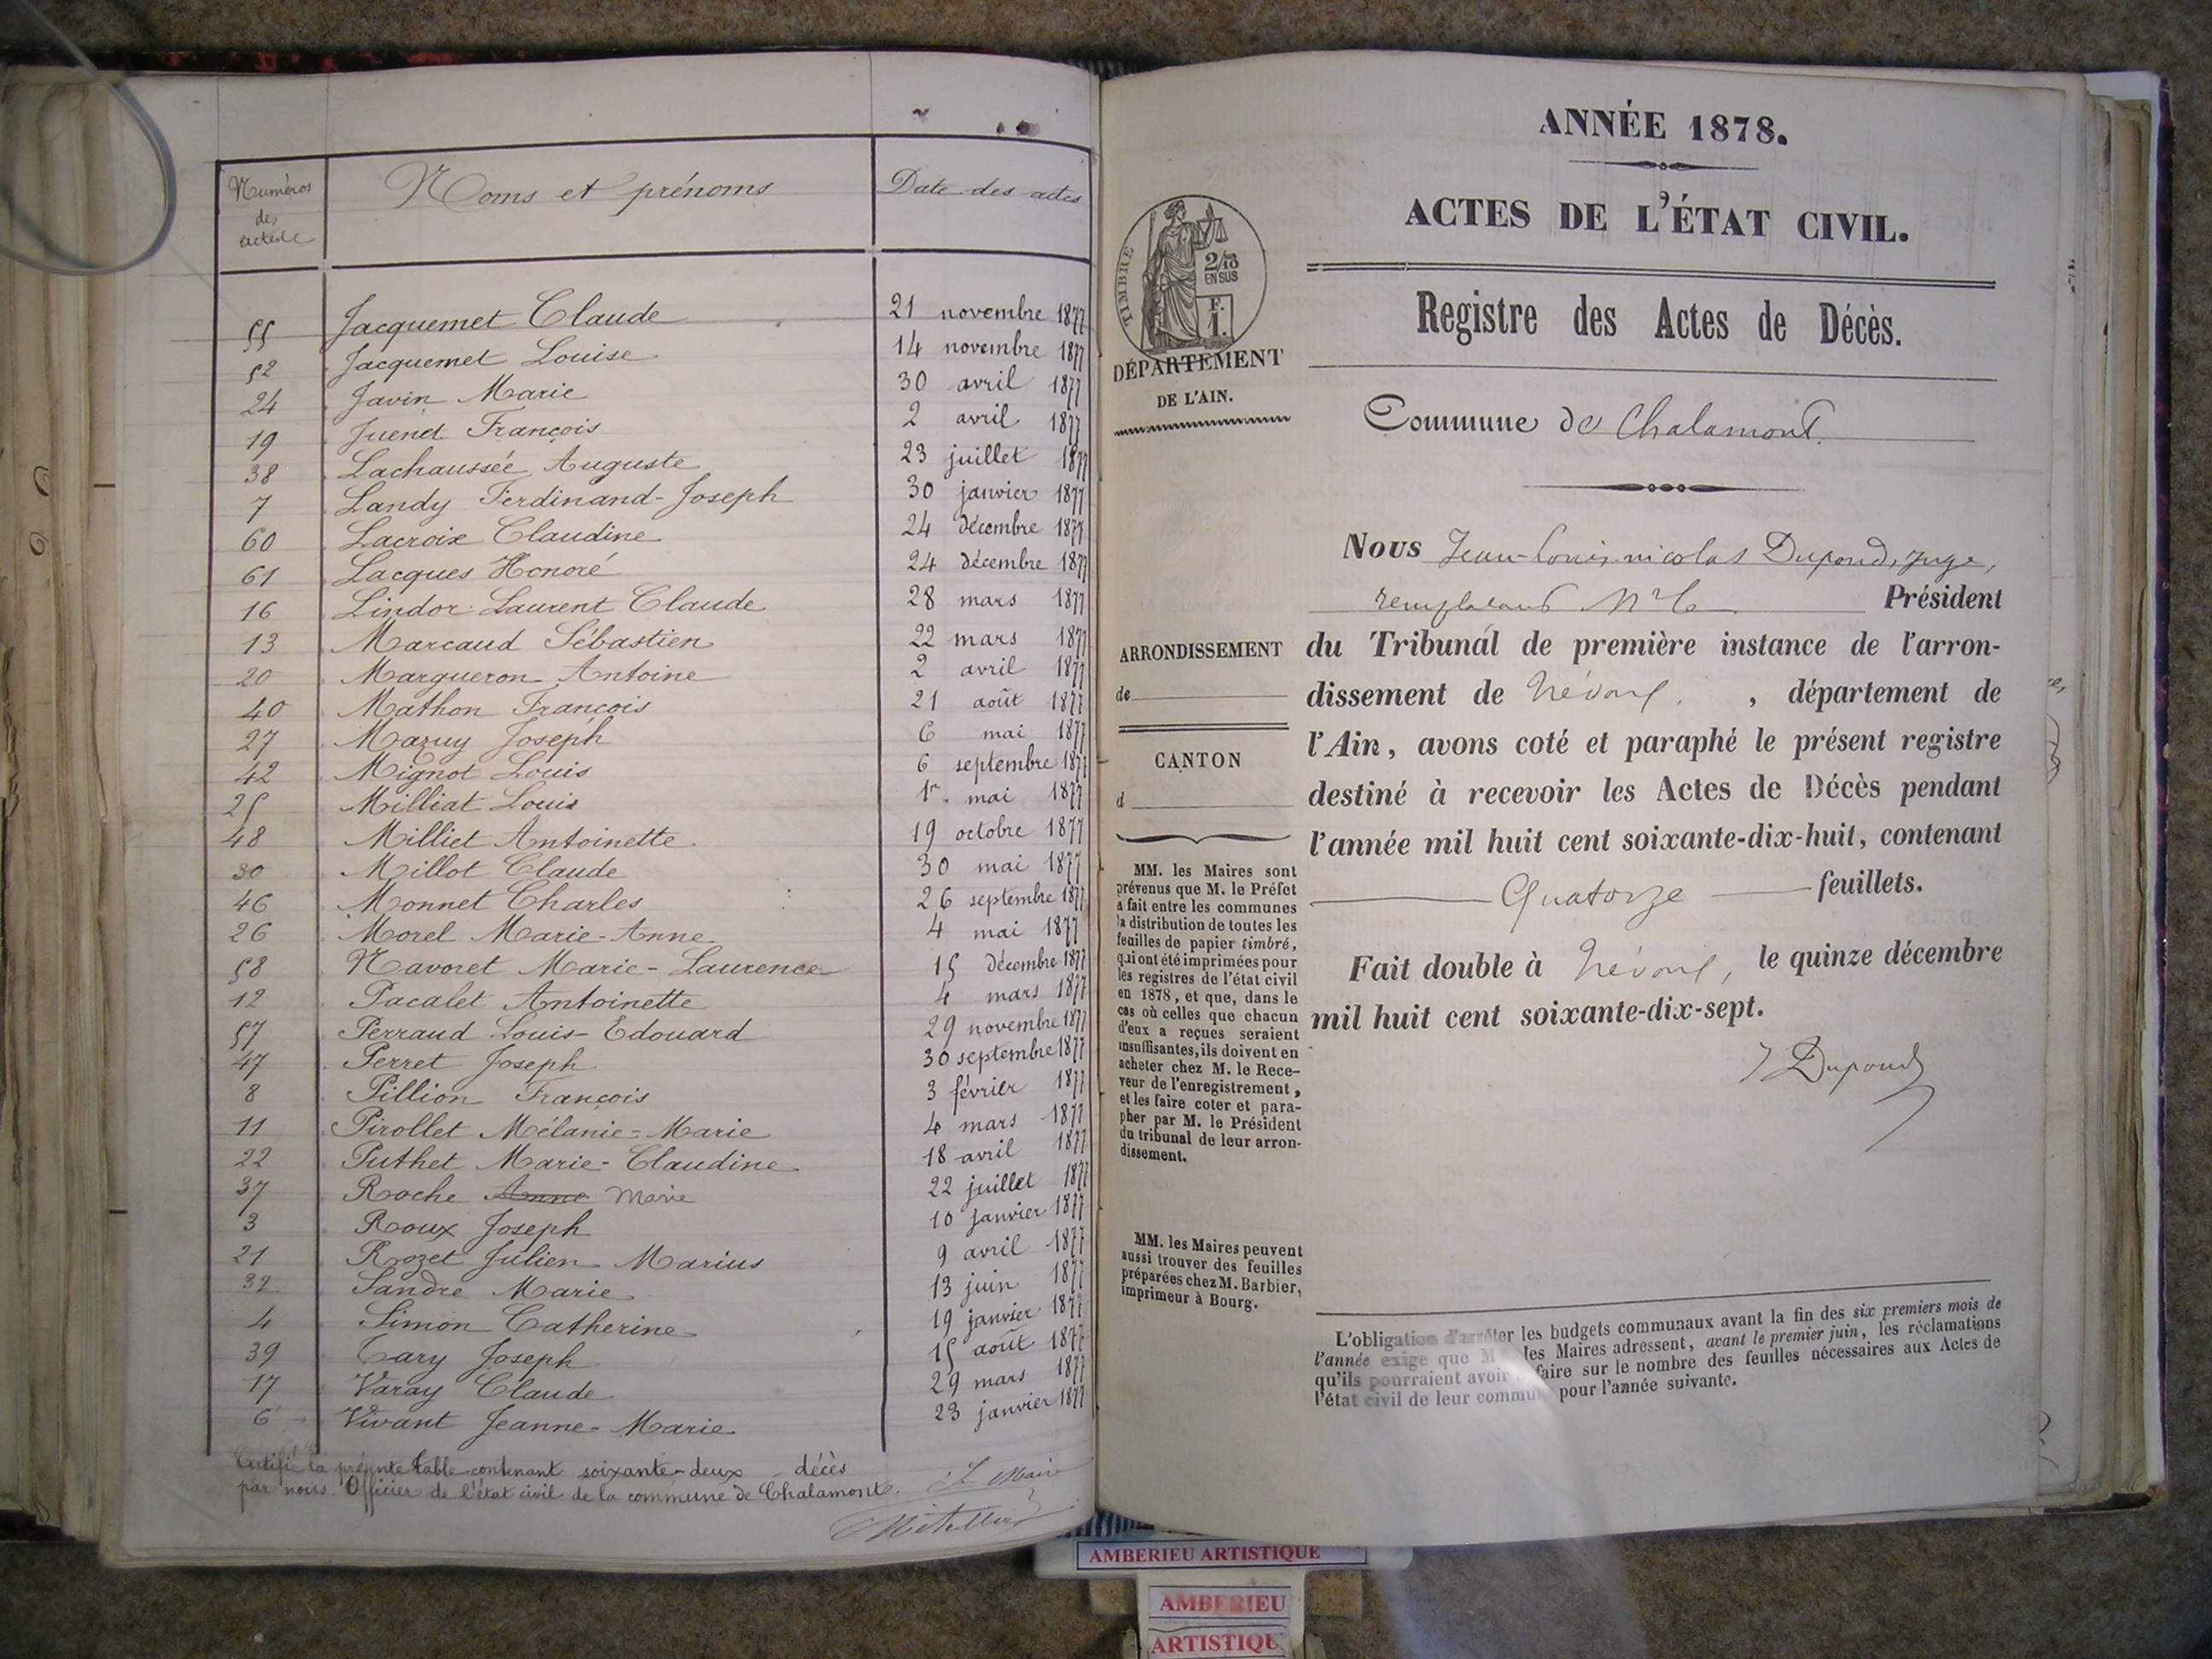 Numéros des actes Noms et prénoms Date des actes
55 Jacquemet Claude 21 novembre 1877
52 Jacquemet Louise 14 novembre 1877
24 Javin Marie 30 avril 1877
19 Juenet François 2 avril 1877
38 Lachaussée Auguste 23 juillet 1877
7 Landy Ferdinand-Joseph 30 janvier 1877
60 Lacroix Claudine 24 décembre 1877
61 Lacques Honoré 24 décembre 1877
16 Lindor Laurent Claude 28 mars 1877
13 Marcaud Sébastien 22 mars 1877
20 Margueron Antoine 2 avril 1877
40 Mathon François 21 août 1877
27 Mazuy Joseph 6 mai 1877
42 Mignot Louis 6 septembre 1877
25 Milliat Louis 1r. mai 1877
48 Milliet Antoinette 19 octobre 1877
30 Millot Claude 30 mai 1877
46 Monnet Charles 26 septembre 1877
26 Morel Marie-Anne 4 mai 1877
58 Navoret Marie-Laurence 15 décembre 1877
12 Pacalet Antoinette 4 mars 1877
57 Perraud Louis-Edouard 29 novembre 1877
47 Perret Joseph 30 septembre 1877
8 Pillion François 3 février 1877
11 Pirollet Mélanie-Marie 4 mars 1877
22 Puthet Marie-Claudine 18 avril 1877
37 Roche Anne Marie 22 juillet 1877
3 Roux Joseph 10 janvier 1877
21 Rozet Julien Marius 9 avril 1877
32 Sandre Marie 13 juin 1877
4 Simon Catherine 19 janvier 1877
39 Tary Joseph 15 août 1877
17 Varay Claude 29 mars 1877
6 Vivant Jeanne-Marie 23 janvier 1877
Certifié la présente table contenant soixante-deux décès
par nous Officier de l'état civil de la commune de Chalamont.
Le Maire
ANNÉE 1878.
ACTES DE L'ÉTAT CIVIL.
Registre des Actes de Décès.
TIMBRE
2/10
EN SUS
F.
1.
DÉPARTEMENT
DE L'AIN.
Commune de Chalamont.
Nous Jean-Louis-nicolas Dupond, juge,
remplaçant Mr le Président
du Tribunal de première instance de l'arron-
dissement de Trévoux, département de
l'Ain, avons coté et paraphé le présent registre
destiné à recevoir les Actes de Décès pendant
l'année mil huit cent soixante-dix-huit, contenant
Quatorze feuillets.
Fait double à Trévoux, le quinze décembre
mil huit cent soixante-dix-sept.
Dupond
ARRONDISSEMENT
de
CANTON
d
MM. les Maires sont
prévenus que M. le Préfet
a fait entre les communes
la distribution de toutes les
feuilles de papier timbré,
qui ont été imprimées pour
les registres de l'état civil
en 1878, et que, dans le
cas où celles que chacun
d'eux a reçues seraient
insuffisantes, ils doivent en
acheter chez M. le Rece-
veur de l'enregistrement,
et les faire coter et para-
pher par M. le Président
du tribunal de leur arron-
dissement.
MM. les Maires peuvent
aussi trouver des feuilles
préparées chez M. Barbier,
imprimeur à Bourg.
L'obligation d'arrêter les budgets communaux avant la fin des six premiers mois de
l'année exige que MM. les Maires adressent, avant le premier juin, les réclamations
qu'ils pourraient avoir à faire sur le nombre des feuilles nécessaires aux Actes de
l'état civil de leur commune pour l'année suivante.
AMBERIEU ARTISTIQUE
AMBERIEU
ARTISTIQUE